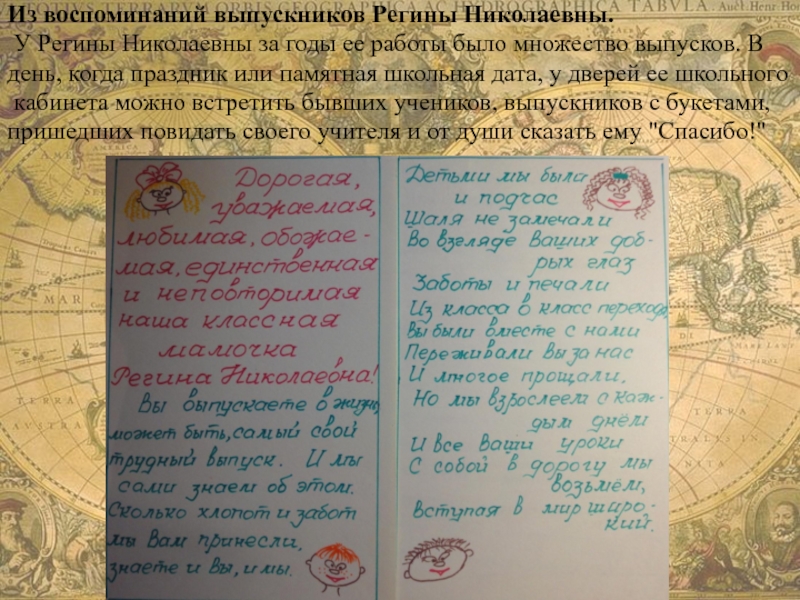 TOTIUS TERRARUM ORBIS GEOGRAPHICA AC HYDROGRAPHICA TABULA. Auct. Henr. Hon
Из воспоминаний выпускников Регины Николаевны.
У Регины Николаевны за годы ее работы было множество выпусков. В
день, когда праздник или памятная школьная дата, у дверей ее школьного
кабинета можно встретить бывших учеников, выпускников с букетами,
пришедших повидать своего учителя и от души сказать ему "Спасибо!"
Дорогая,
уважаемая,
любимая, обожае-
мая, единственная
и неповторимая
наша классная
мамочка
Регина Николаевна!
Вы выпускаете в жизнь,
может быть, самый свой
трудный выпуск. И мы
сами знаем об этом.
Сколько хлопот и забот
мы Вам принесли,
знаете и Вы, и мы.
Детьми мы были
и подчас
Шаля не замечали
Во взгляде Ваших доб-
рых глаз
Заботы и печали
Из класса в класс переходя,
Вы были вместе с нами
Переживали Вы за нас
И многое прощали.
Но мы взрослеем с каж-
дым днём
И все Ваши уроки
С собой в дорогу мы
возьмём,
Вступая в мир широ-
кий.
MAR
TERRA